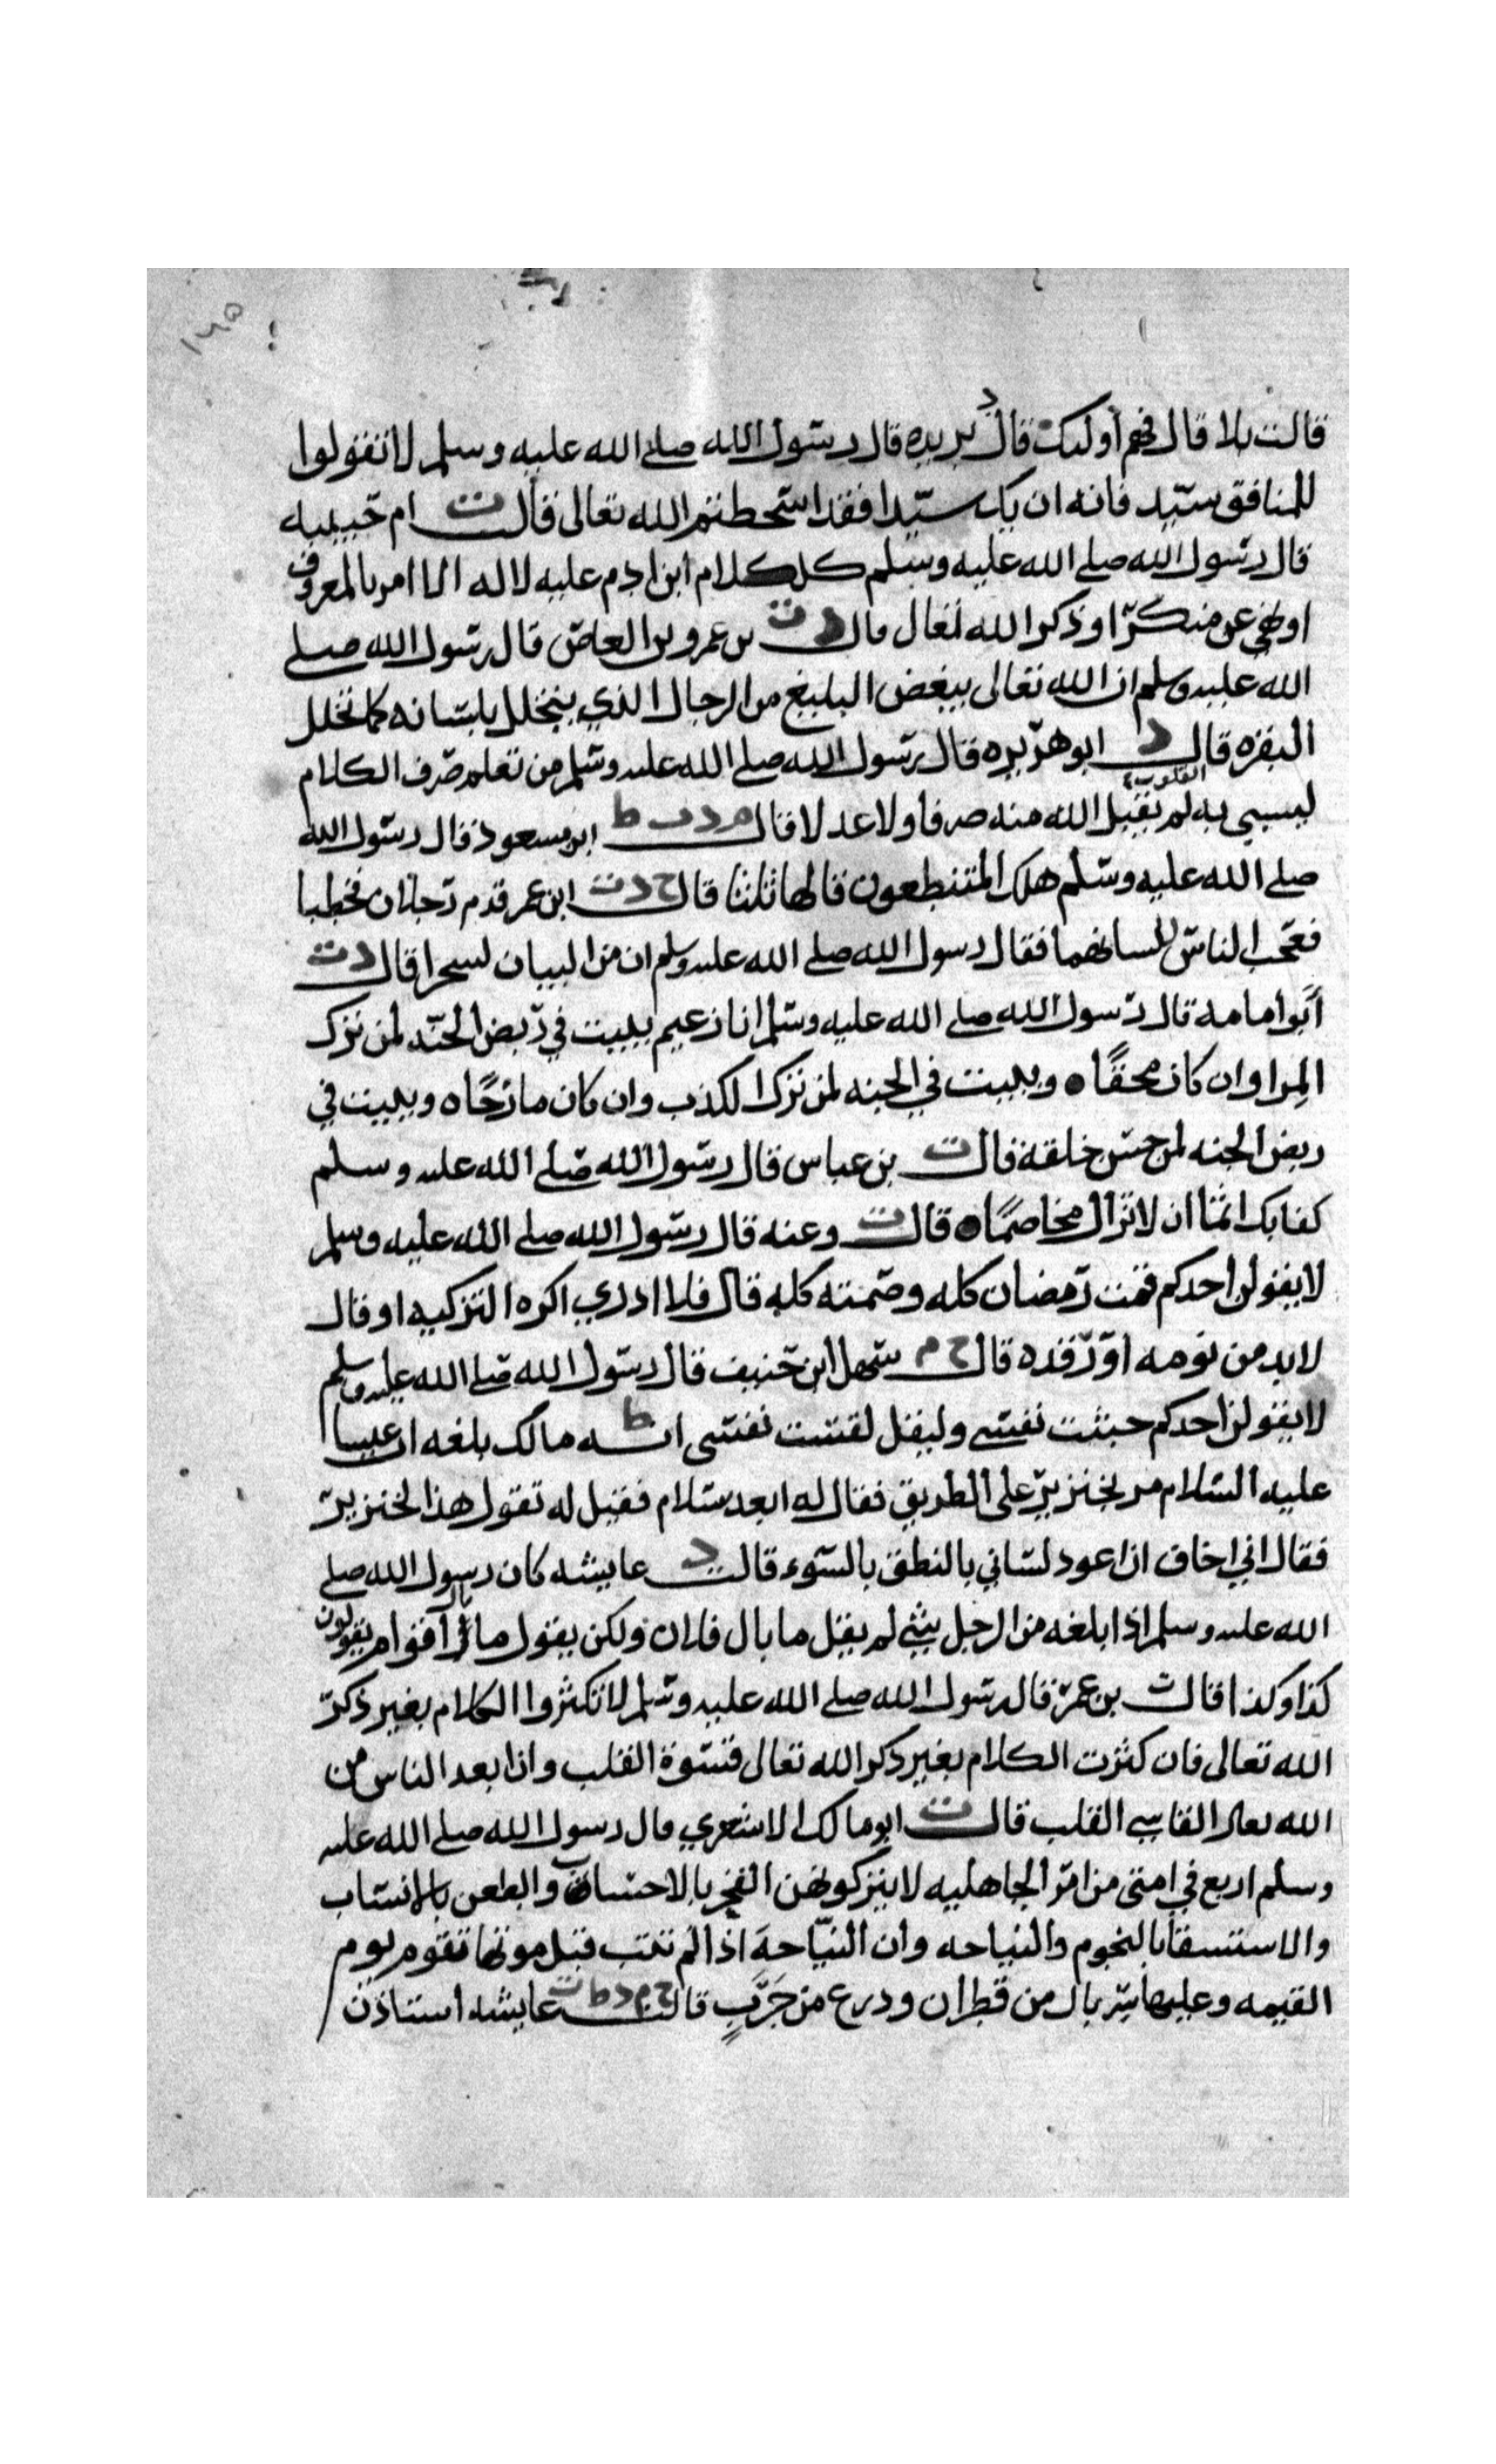 ١٣٥
قالت بلا قال فهم أوليك قال د بريده قال رسول الله صلے الله عليه وسلم لا تقولوا
للمنافق سيد فانه ان يك سيدا فقد اسخطتم الله تعالى قالت ت ام حبيبه
قال رسول الله صلے الله عليه وسلم كل كلام ابن ادم عليه لا له الا امر بالمعروف
او نهي عن منكر او ذكر الله تعال قال د ت بن عمرو بن العاص قال رسول الله صلے
الله عليه وسلم ان الله تعالى يبغض البليغ من الرجال الذي يتخلل بلسانه كما تخلل
البقره قال د ابو هريره قال رسول الله صلے الله عليه وسلم من تعلم صرف الكلام
ليسبي به القلوب لم يقبل الله منه صرفا ولا عدلا قال م د ط ابن مسعود قال رسول الله
صلے الله عليه وسلم هلك المتنطعون قالها ثلثا قال خ د ت ابن عمر قدم رجلان فخطبا
فعجب الناس للسانهما فقال رسول الله صلے الله عليه وسلم ان من البيان لسحرا قال د ت
أبو امامه قال رسول الله صلے الله عليه وسلم انا زعيم ببيت في ربض الجنه لمن ترك
المِرا وان كان محقًا ه وببيت في الجنه لمن ترك الكذب وان كان مازحًا ه وببيت في
ربض الجنه لمن حسن خلقه قال ت بن عباس قال رسول الله صلے الله عليه وسلم
كفا بك اثما ان لا تزال مخاصمًا ه قال ت وعنه قال رسول الله صلے الله عليه وسلم
لا يقولن احدكم قمت رمضان كله وصمته كله قال فلا ادري اكره التزكيه او قال
لا بد من نومه أو رقده قال خ م سهل ابن حنيف قال رسول الله صلے الله عليه وسلم
لا يقولن احدكم خبثت نفسے وليقل لقست نفسى انه ط مالك بلغه ان عيسا
عليه السلام مر بخنزير على الطريق فقال له ابعد بسلام فقيل له تقول هذا لخنزير
فقال اني اخاف ان اعود لساني بالنطق بالسوء قالت د عايشه كان رسول الله صلے
الله عليه وسلم اذا بلغه من الرجل شي لم يقل ما بال فلان ولكن يقول ما بال أقوام يقولون
كذا وكذا قال ت بن عمر قال رسول الله صلے الله عليه وسلم لا تكثروا الكلام بغير ذكر
الله تعالى فان كثرت الكلام بغير ذكر الله تعالى قسوة القلب وان ابعد الناس من
الله تعالى القاسے القلب قال ت ابو مالك الاشعري قال رسول الله صلے الله عليه
وسلم اربع في امتى من امر الجاهليه لا يتركونهن الفخر بالاحساب والطعن بالانساب
والاستسقا بالنجوم والنياحه وان النيّاحة اذا لم تتب قبل موتها تقوم يوم
القيمه وعليها سربال من قطران ودرع من جَرَبٍ قالت خ م د ط ت عايشه استاذن